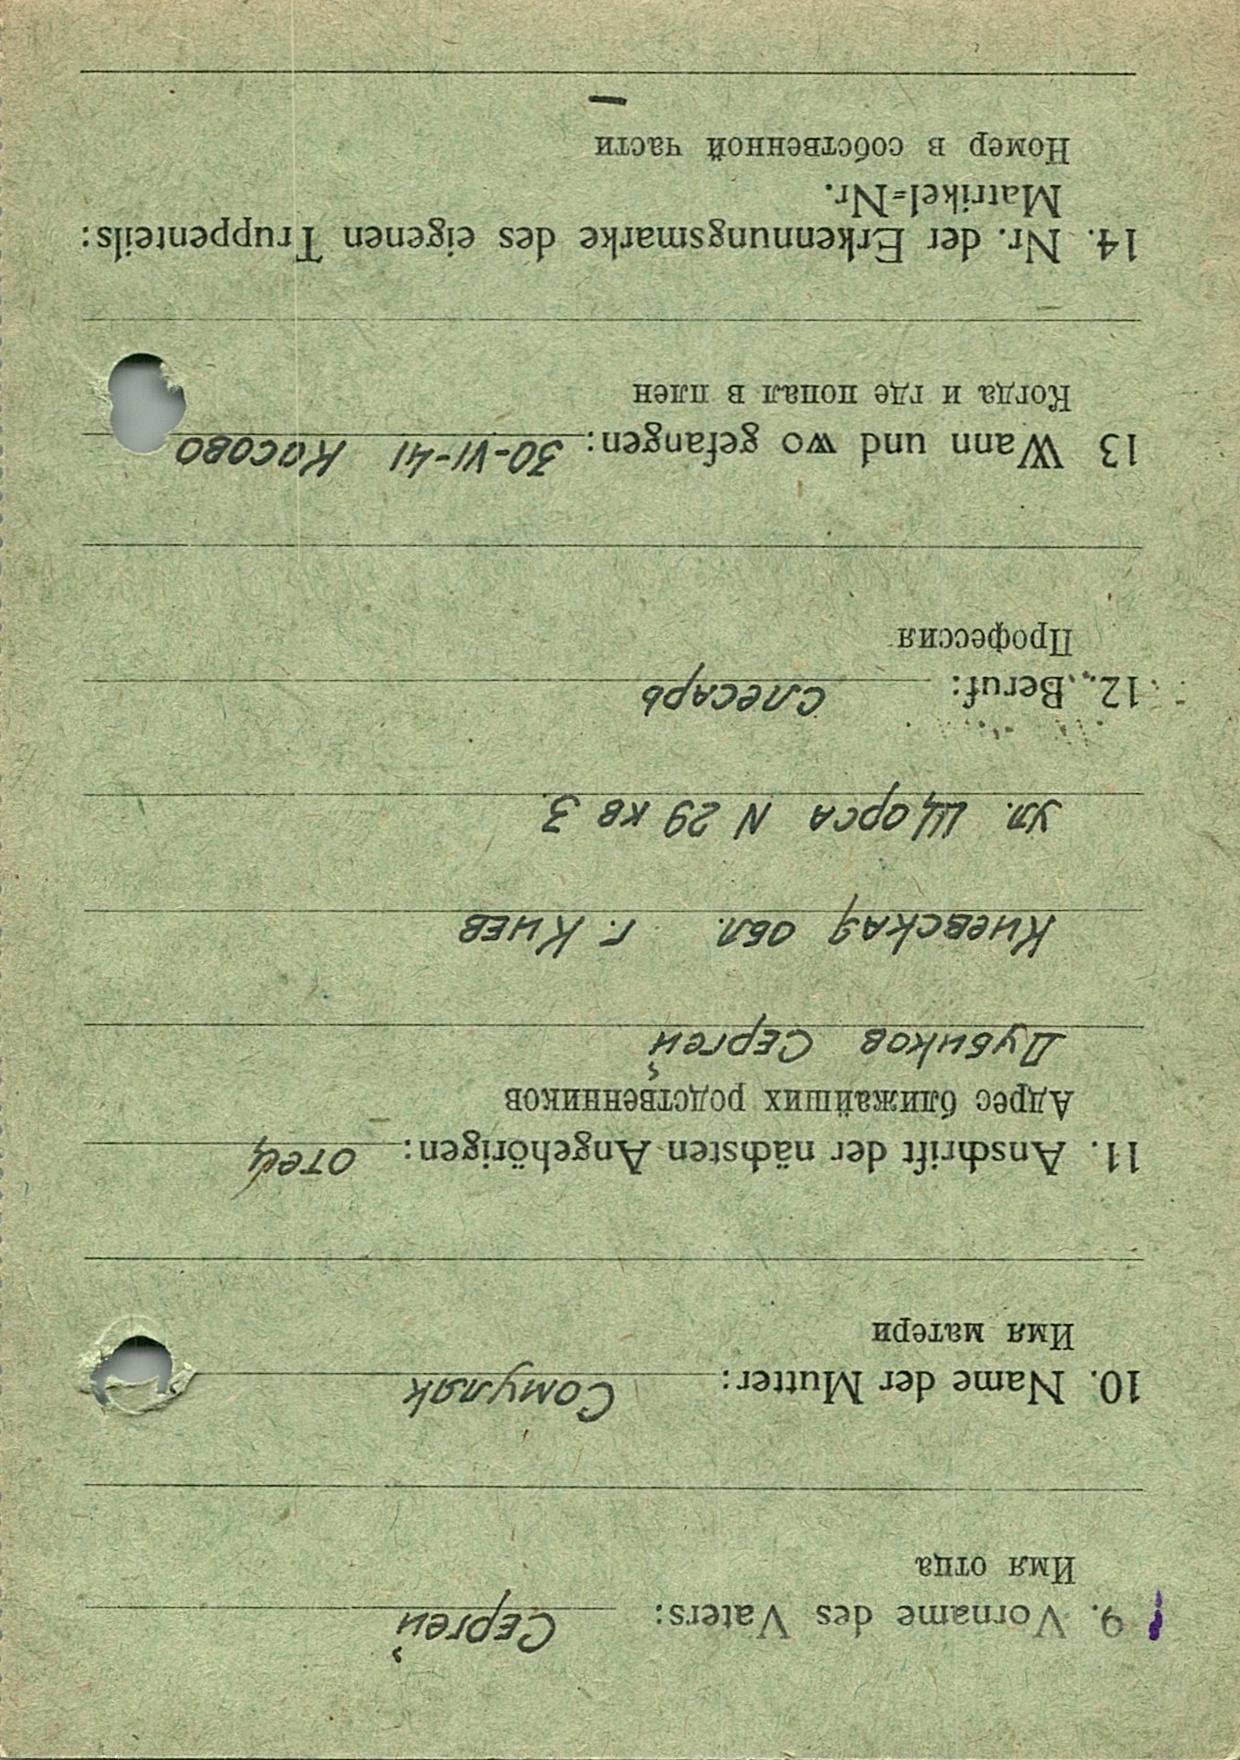 9. Vorname des Vaters: Сергей
Имя отца
10. Name der Mutter: Сомуляк
Имя матери
11. Anschrift der nächsten Angehörigen: отец
Адрес ближайших родственников
Дубиков Сергей
Киевская обл. г. Киев
ул. Щорса N 29 кв 3
12. Beruf: слесарь
Профессия
13 Wann und wo gefangen: 30-VI-41 Косово
Когда и где попал в плен
14. Nr. der Erkennungsmarke des eigenen Truppenteils:
Matrikel=Nr.
Номер в собственной части
—